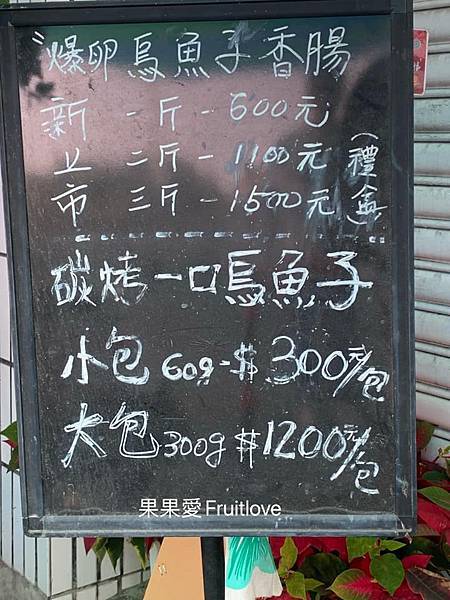 〝爆卵烏魚子香腸
新 一斤-600元
上 二斤-1100元
市 三斤-1500元
(禮盒)
碳烤一口烏魚子
小包60g-$300元/包
大包300g $1200元/包
果果愛Fruitlove